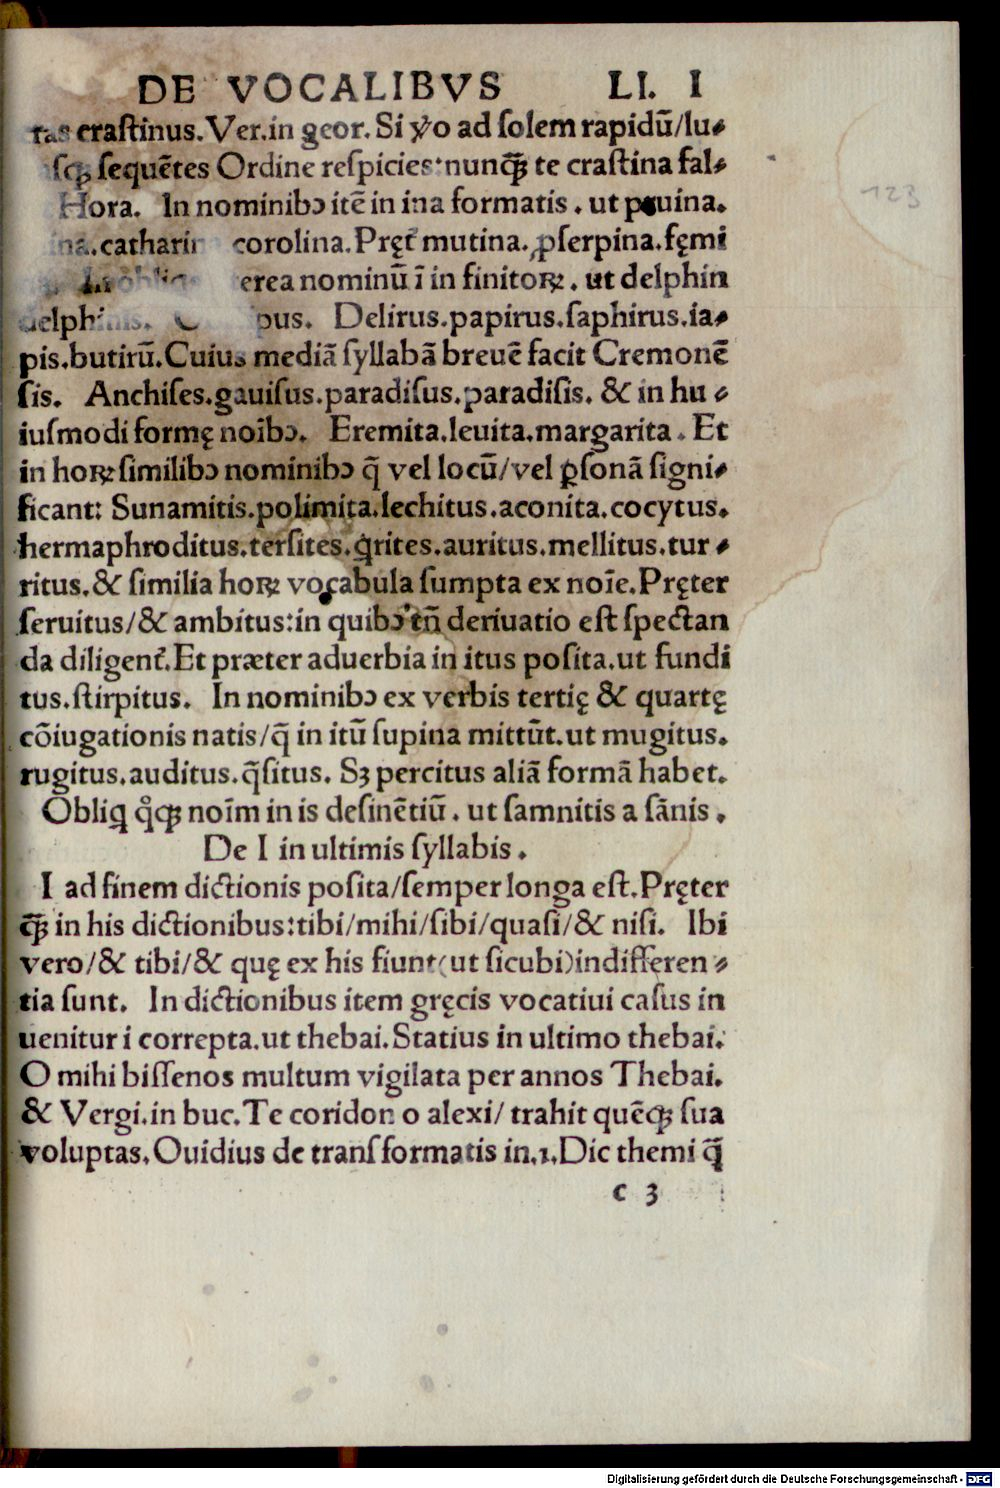 DE VOCALIBVS LI. I
123
craſtinus.Ver.in geor. Si ꝟo ad ſolem rapidū/lu⸗
ſꝗꝫ ſequētes Ordine reſpicies:nunꝗ̄ꝫ te craſtina fal⸗
Hora. In nominibꝰ itē in ina formatis . ut pruina.
corolina.Pręt̄ mutina.ꝓſerpina.fęmi
erea nominū ī in finitoꝝ . ut delphin
pus. Delirus.papirus.ſaphirus.ia⸗
pis.butirū.Cuius mediā ſyllabā breuē facit Cremonē
ſis. Anchiſes.gauiſus.paradiſus.paradiſis. & in hu ⸗
iuſmodi formę noībꝰ. Eremita.leuita.margarita . Et
in hoꝝ ſimilibꝰ nominibꝰ q̄ vel locū/vel ꝑſonā ſigni⸗
ficant: Sunamitis.polimita.lechitus.aconita.cocytus.
hermaphroditus.terſites.qͥrites.auritus.mellitus.tur ⸗
ritus.& ſimilia hoꝝ vocabula ſumpta ex noīe.Pręter
ſeruitus/& ambitus:in quibꝰ tn̄ deriuatio eſt ſpectan
da diligent̄.Et præter aduerbia in itus poſita.ut fundi
tus.ſtirpitus. In nominibꝰ ex verbis tertię & quartę
cōiugationis natis/q̄ in itū ſupina mittūt.ut mugitus.
rugitus.auditus.q̄ſitus. Sꝫ percitus aliā formā habet.
Obliꝗ qͦꝗꝫ noīm in is deſinētiū . ut ſamnitis a ſānis .
De I in ultimis ſyllabis .
I ad finem dictionis poſita/ſemper longa eſt.Pręter
ꝗ̄ꝫ in his dictionibus:tibi/mihi/ſibi/quaſi/& niſi. Ibi
vero/& tibi/& quę ex his fiunt(ut ſicubi)indifferen ⸗
tia ſunt. In dictionibus item gręcis vocatiui caſus in
uenitur i correpta.ut thebai.Statius in ultimo thebai.
O mihi biſſenos multum vigilata per annos Thebai.
& Vergi.in buc.Te coridon o alexi/ trahit quēꝗꝫ ſua
voluptas.Ouidius de tranſformatis in.1.Dic themi q̄
c 3
Digitalisierung gefördert durch die Deutsche Forschungsgemeinschaft - DFG